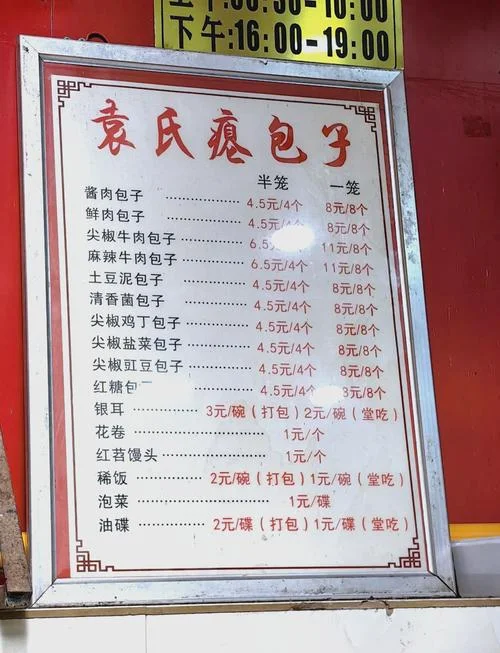 下午:16:00-19:00
袁氏瘪包子
半笼 一笼
酱肉包子 4.5元/4个 8元/8个
鲜肉包子 4.5元/4个 8元/8个
尖椒牛肉包子 6.5 11元/8个
麻辣牛肉包子 6.5元/4个 11元/8个
土豆泥包子 4.5元/4个 8元/8个
清香菌包子 4.5元/4个 8元/8个
尖椒鸡丁包子 4.5元/4个 8元/8个
尖椒盐菜包子 4.5元/4个 8元/8个
尖椒豇豆包子 4.5元/4个 8元/8个
红糖包 4.5元/4个 8元/8个
银耳 3元/碗(打包) 2元/碗(堂吃)
花卷 1元/个
红苕馒头 1元/个
稀饭 2元/碗(打包) 1元/碗(堂吃)
泡菜 1元/碟
油碟 2元/碟(打包) 1元/碟(堂吃)